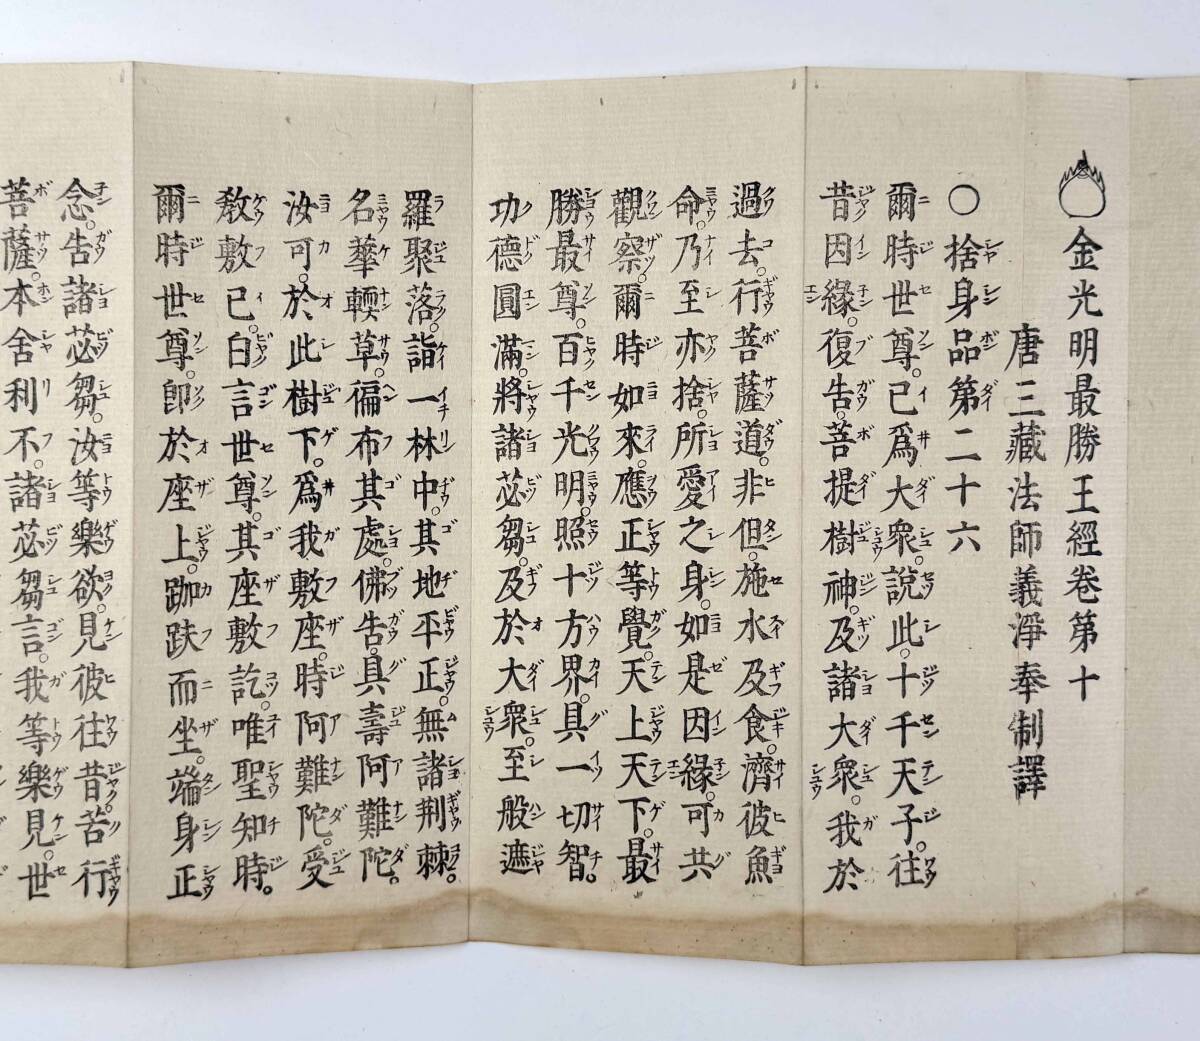 金光明最勝王經卷第十
唐三藏法師義淨奉制譯
〇捨身品第二十六
爾時世尊。已爲大衆。說此。十千天子。往
昔因緣。復告。菩提樹神。及諸大衆。我於
過去。行菩薩道。非但。施水及食。濟彼魚
命。乃至亦捨。所愛之身。如是因緣。可共
觀察。爾時如來。應正等覺。天上天下。最
勝最尊。百千光明。照十方界。具一切智。
功德圓滿。將諸苾芻。及於大衆。至般遮
羅聚落。詣一林中。其地平正。無諸荆棘。
名華輭草。徧布其處。佛告。具壽阿難陀。
汝可。於此樹下。爲我敷座。時阿難陀。受
敎敷已。白言世尊。其座敷訖。唯聖知時。
爾時世尊。卽於座上。跏趺而坐。端身正
念。告諸苾芻。汝等樂欲。見彼往昔。苦行
菩薩。本舍利不。諸苾芻言。我等樂見。世